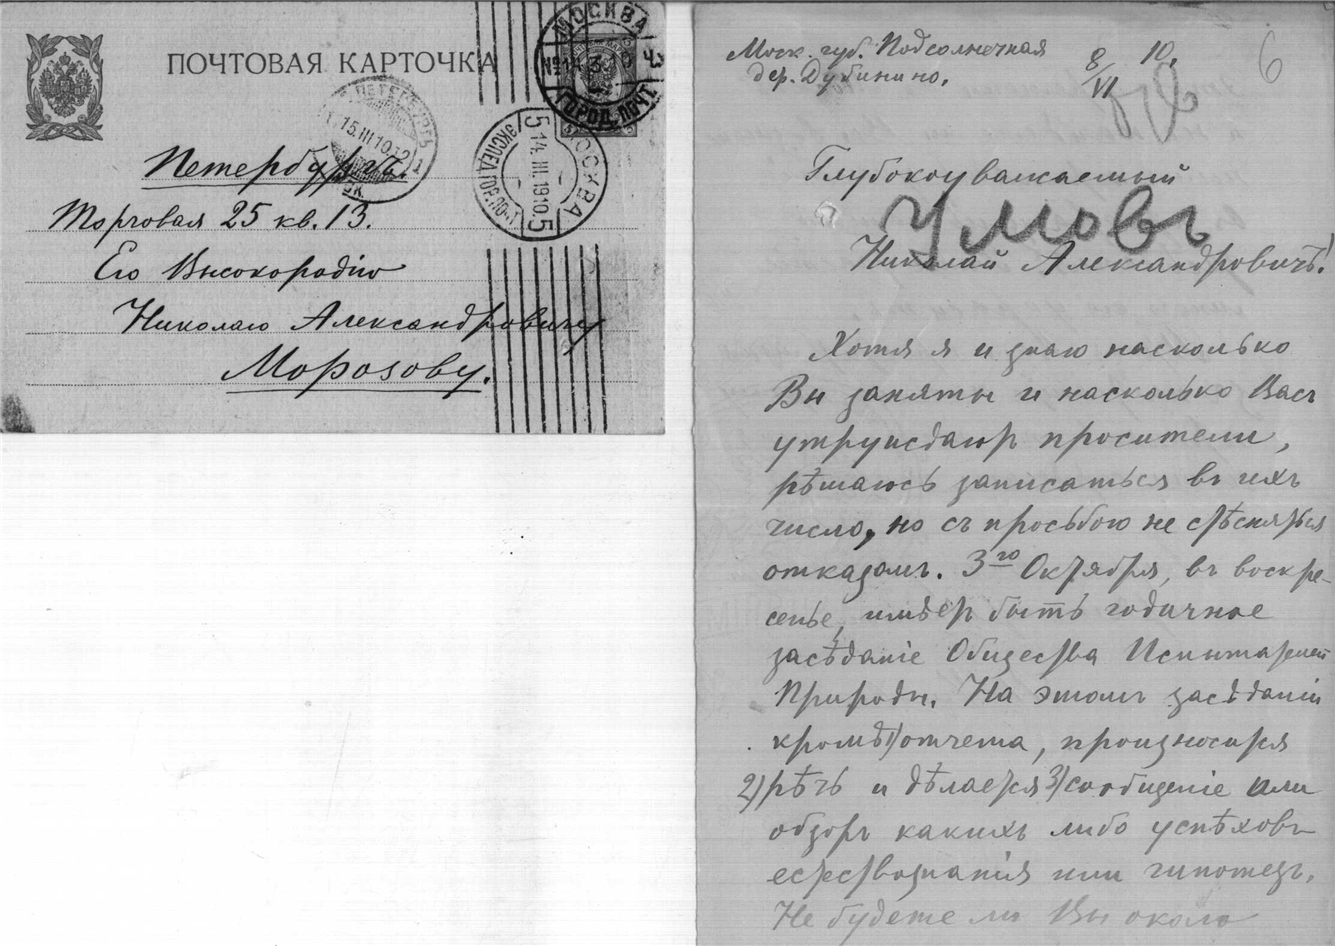 ПОЧТОВАЯ КАРТОЧКА
МОСКВА
ГОРОД. ПОЧТ.
ПЕТЕРБУРГЪ
15.III.10
МОСКВА
14.III.1910
5
5
ЭКСПЕД. ГОР. ПОЧТ.
Петербургъ.
Торговая 25 кв. 13.
Его Высокородію
Николаю Александровичу
Морозову.
Моск. губ. Подсолнечная
дер. Дубинино.
8/VI 10.
6
Глубокоуважаемый
Умовъ
Николай Александровичъ!
Хотя я и знаю насколько
Вы заняты и насколько Васъ
утруждаютъ просители,
рѣшаюсь записаться въ ихъ
число, но съ просьбою не стѣсняться
отказомъ. 3го Октября, въ воскре-
сенье, имѣетъ быть годичное
засѣданіе Общества Испытателей
Природы. На этомъ засѣданіи
кромѣ 1) отчета, произносится
2) рѣчь и дѣлается 3) сообщеніе или
обзоръ какихъ либо успѣховъ
естествознанія или гипотезъ.
Не будете ли Вы около